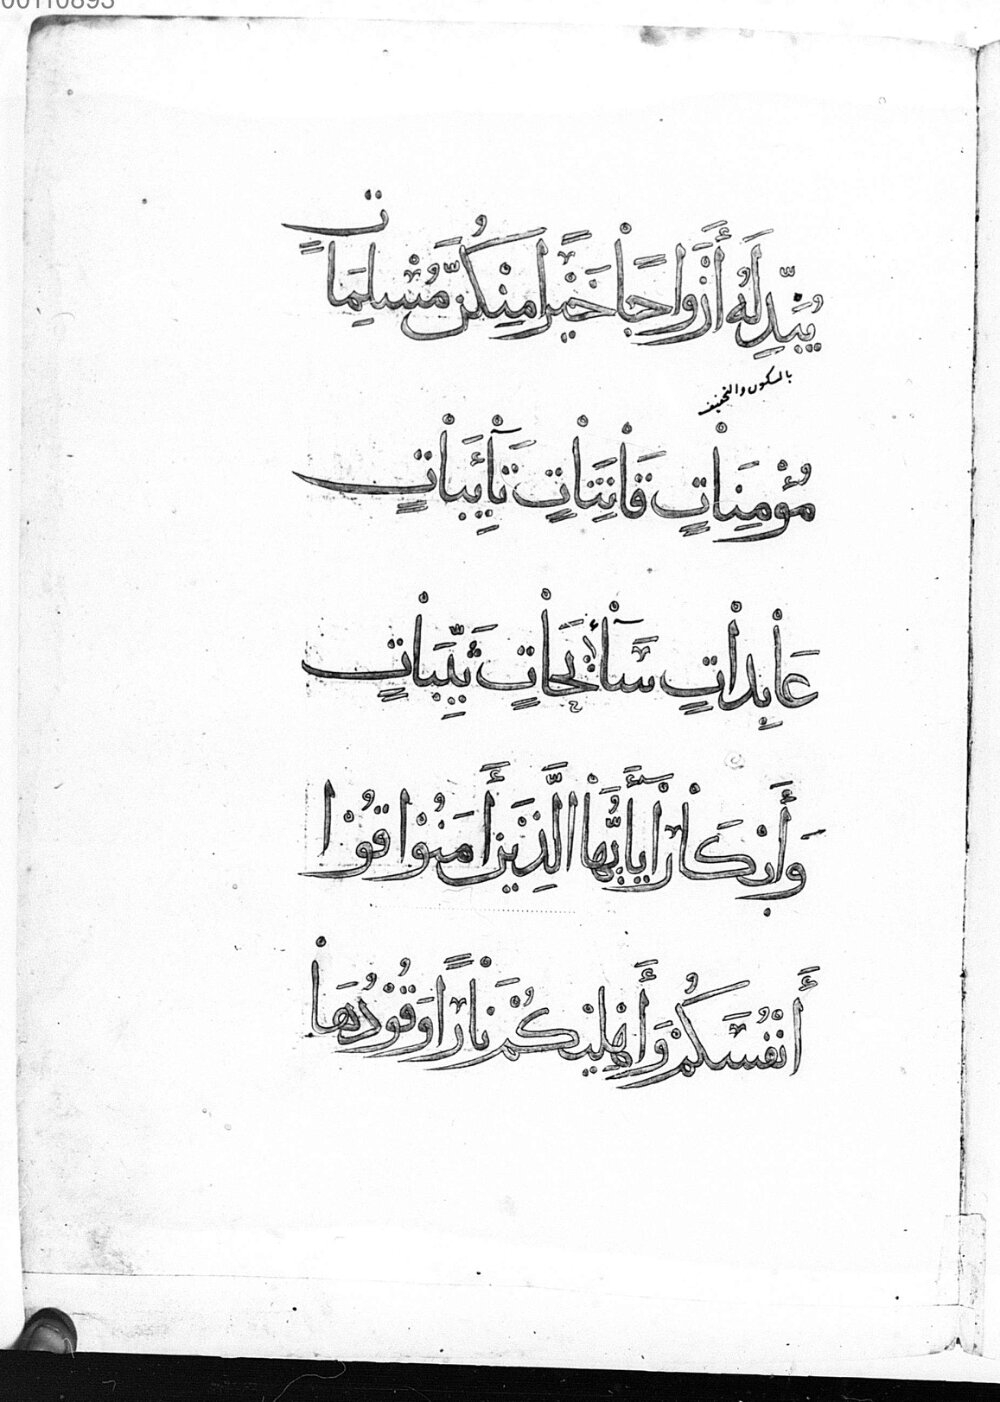 00110893
يُبَدِّلَهُ أَزْوَاجًا خَيْرًا مِنْكُنَّ مُسْلِمَاتٍ
بالسكون والتخفيف
مُؤْمِنَاتٍ قَانِتَاتٍ تَآئِبَاتٍ
عَابِدَاتٍ سَآئِحَاتٍ ثَيِّبَاتٍ
وَأَبْكَارًا يَآأَيُّهَا الَّذِينَ أَمَنُوْا قُوْا
أَنْفُسَكُمْ وَأَهْلِيْكُمْ نَارًا وَقُوْدُهَا